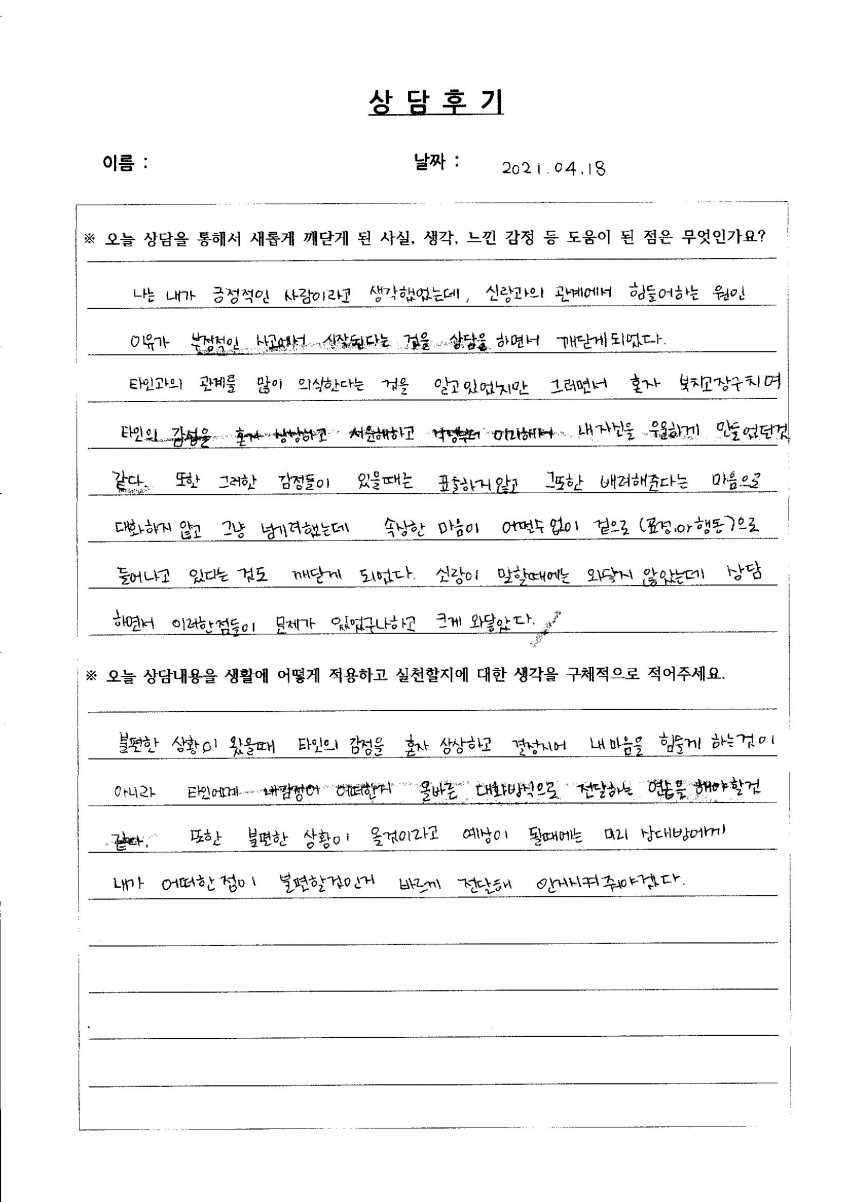 상 담 후 기
이름 : 날짜 : 2021.04.18
※ 오늘 상담을 통해서 새롭게 깨닫게 된 사실, 생각, 느낀 감정 등 도움이 된 점은 무엇인가요?
나는 내가 긍정적인 사람이라고 생각했었는데, 신랑과의 관계에서 힘들어하는 원인
이유가 부정적인 사고에서 시작된다는 것을 상담을 하면서 깨닫게되었다.
타인과의 관계를 많이 의식한다는 것을 알고있었지만 그러면서 혼자 북치고장구치며
타인의 감정을 혼자 상상하고 서운해하고 걱정부터 미리해서 내자신을 우울하게 만들었던것
같다. 또한 그러한 감정들이 있을때는 표출하지않고 그또한 배려해준다는 마음으로
대화하지 않고 그냥 넘기려했는데 속상한 마음이 어쩔수없이 겉으로 (표정이나 행동)으로
들어나고 있다는 것도 깨닫게 되었다. 신랑이 말할때에는 와닿지 않았는데 상담
하면서 이러한점들이 문제가 있었구나하고 크게 와닿았다.
※ 오늘 상담내용을 생활에 어떻게 적용하고 실천할지에 대한 생각을 구체적으로 적어주세요.
불편한 상황이 왔을때 타인의 감정을 혼자 상상하고 결정지어 내마음을 힘들게 하는것이
아니라 타인에게 내감정이 어떠한지 올바른 대화방식으로 전달하는 연습을 해야할것
같다. 또한 불편한 상황이 올것이라고 예상이 될때에는 미리 상대방에게
내가 어떠한점이 불편할것인지 바르게 전달해 인지시켜줘야겠다.